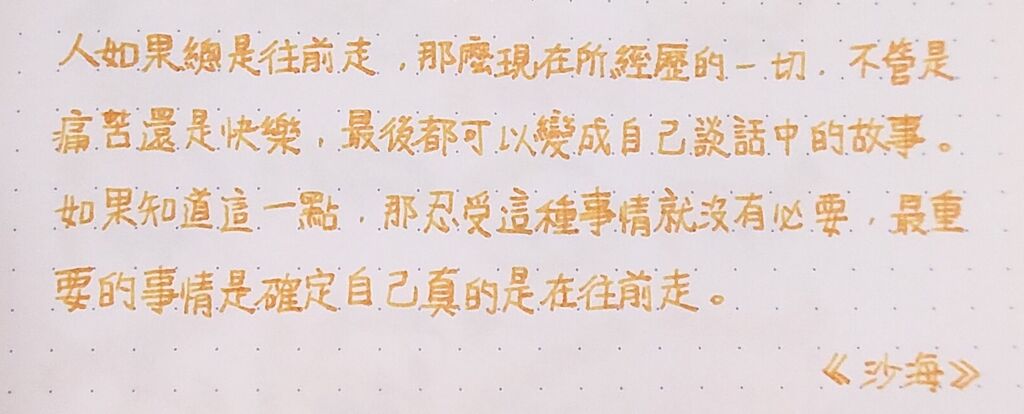 人如果總是往前走，那麼現在所經歷的一切，不管是
痛苦還是快樂，最後都可以變成自己談話中的故事。
如果知道這一點，那忍受這種事情就沒有必要，最重
要的事情是確定自己真的是在往前走。
《沙海》